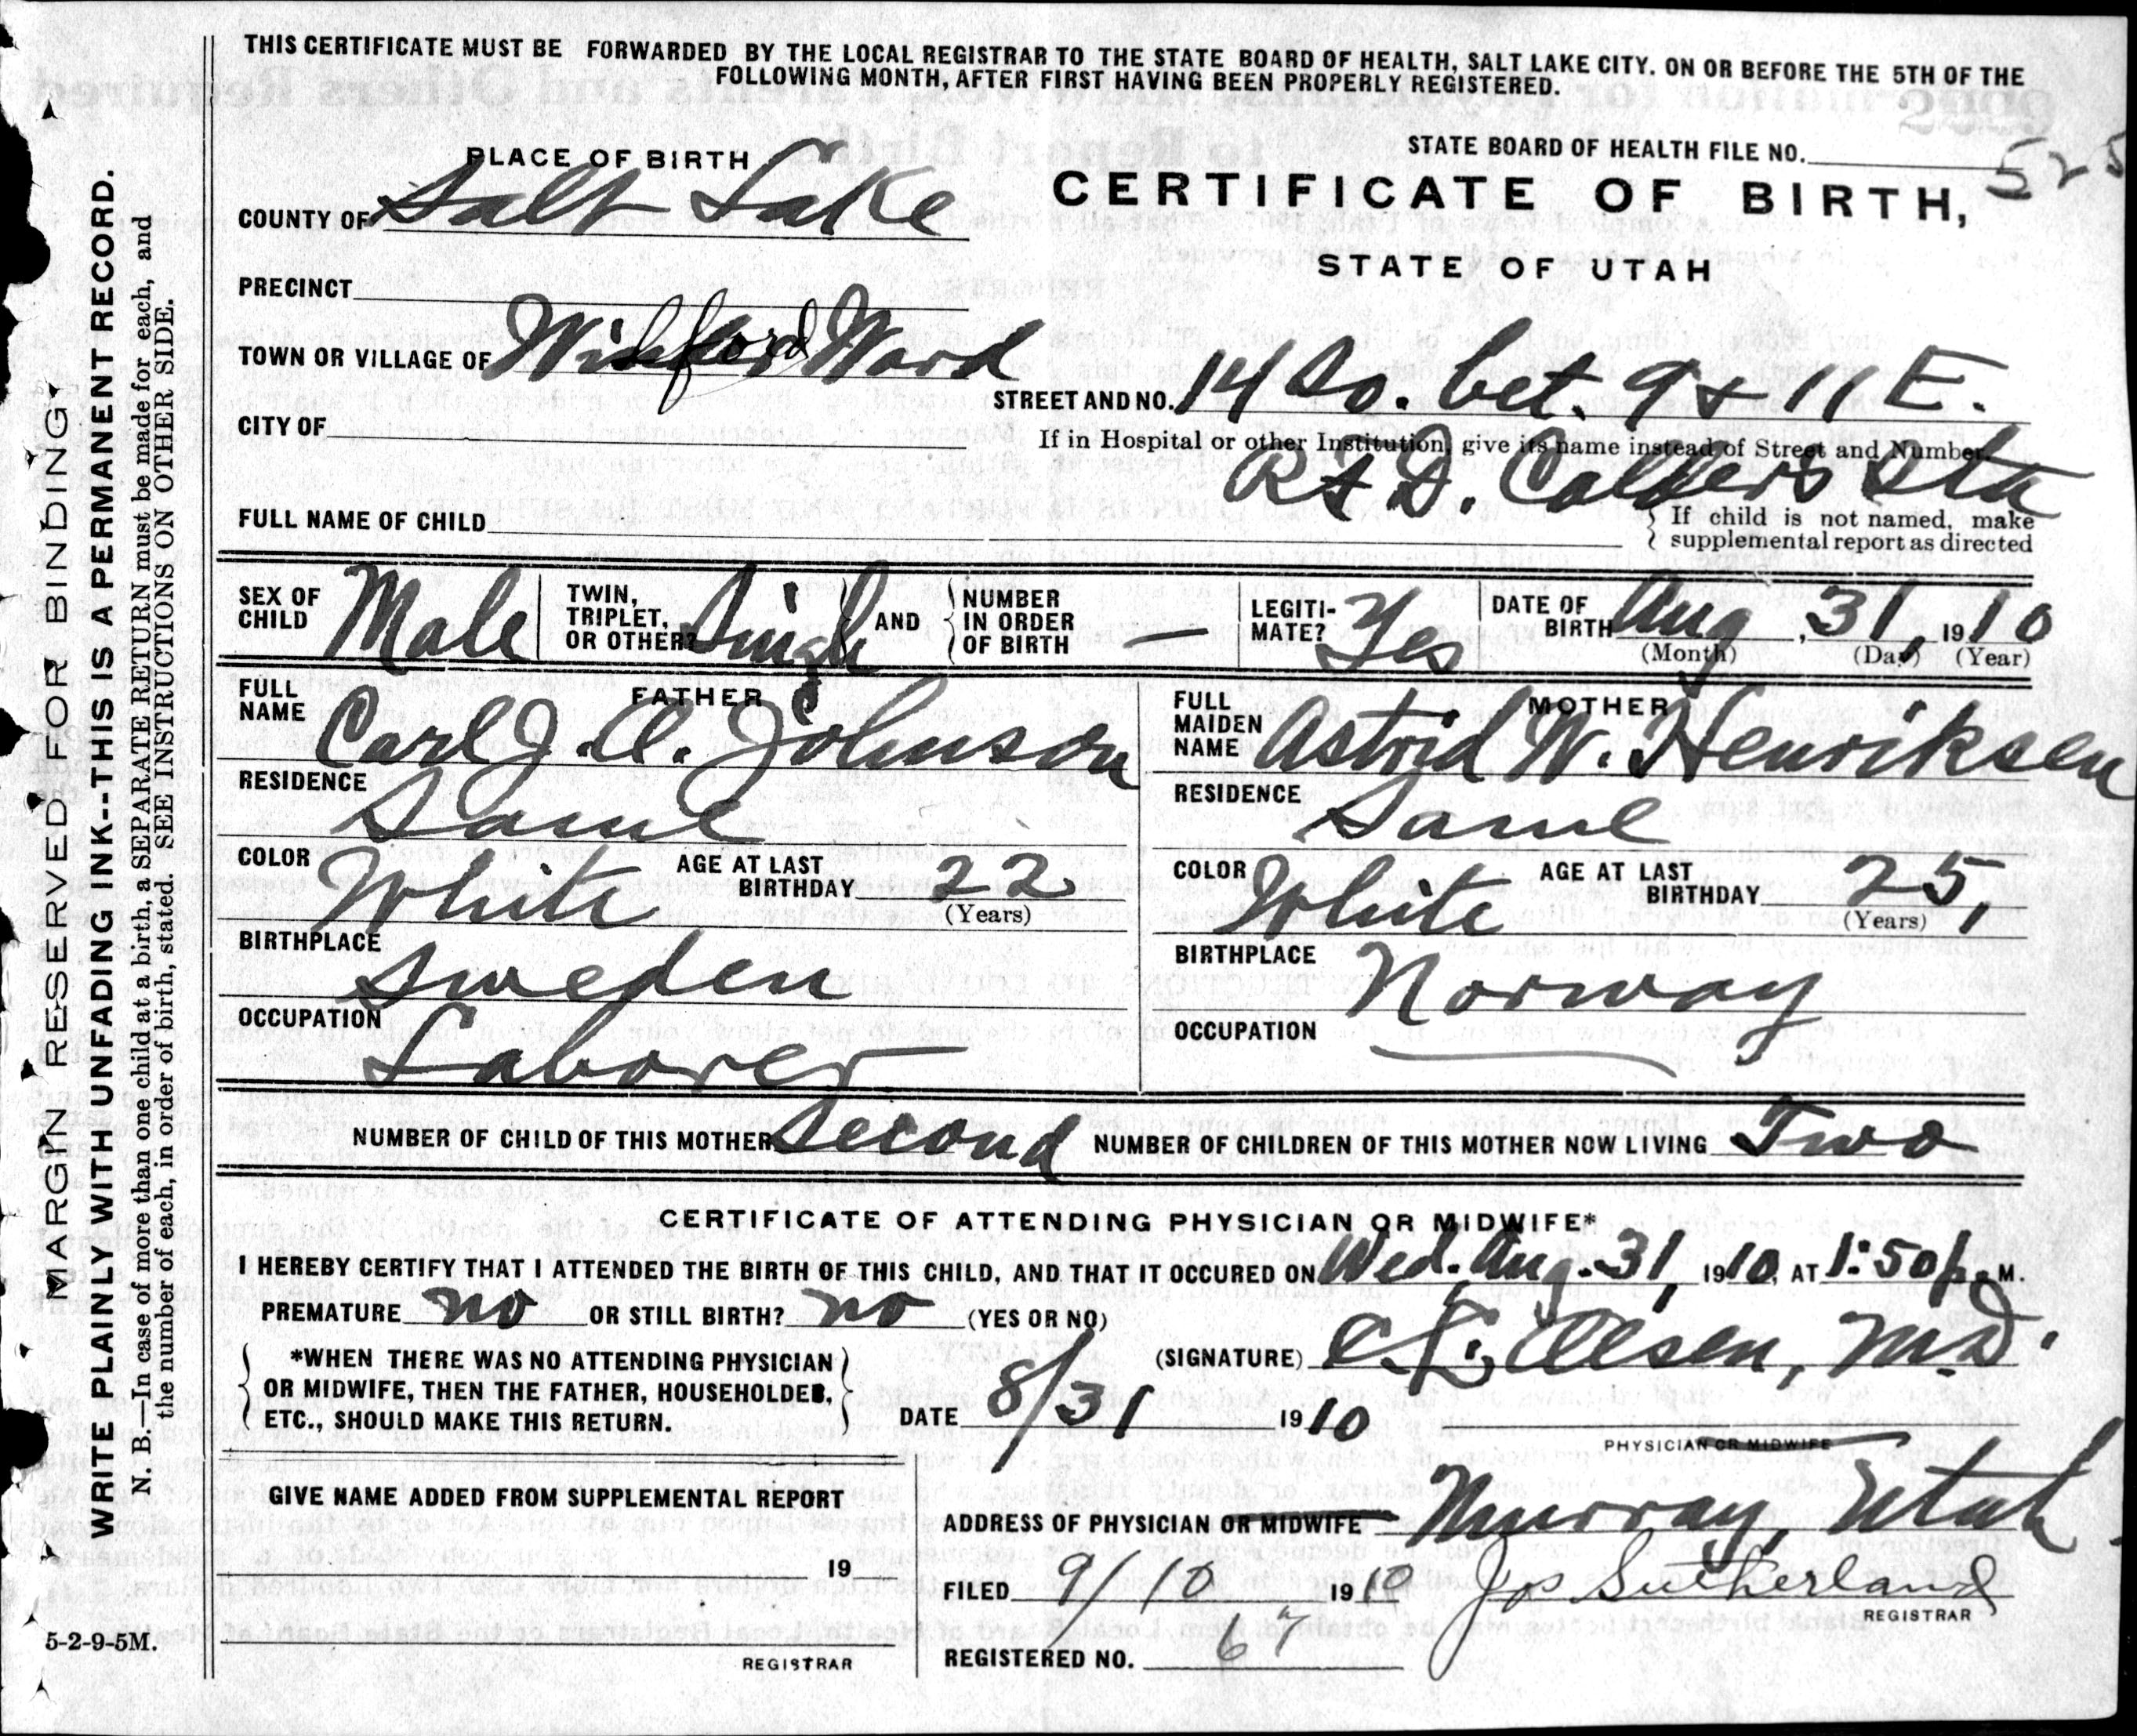 THIS CERTIFICATE MUST BE FORWARDED BY THE LOCAL REGISTRAR TO THE STATE BOARD OF HEALTH, SALT LAKE CITY. ON OR BEFORE THE 5TH OF THE
FOLLOWING MONTH, AFTER FIRST HAVING BEEN PROPERLY REGISTERED.
MARGIN RESERVED FOR BINDING
WRITE PLAINLY WITH UNFADING INK--THIS IS A PERMANENT RECORD.
N. B.—In case of more than one child at a birth, a SEPARATE RETURN must be made for each, and
the number of each, in order of birth, stated. SEE INSTRUCTIONS ON OTHER SIDE.
STATE BOARD OF HEALTH FILE NO.
PLACE OF BIRTH
CERTIFICATE OF BIRTH,
STATE OF UTAH
COUNTY OF Salt Lake
PRECINCT
TOWN OR VILLAGE OF Wilford Ward
STREET AND NO. 14 So. bet. 9 & 11 E.
CITY OF
If in Hospital or other Institution, give its name instead of Street and Number
R F D. Calders Sta
FULL NAME OF CHILD
If child is not named, make
supplemental report as directed
SEX OF CHILD Male TWIN, TRIPLET, OR OTHER? Single AND NUMBER IN ORDER OF BIRTH — LEGITI-MATE? Yes DATE OF BIRTH Aug, 31, 1910
(Month) (Day) (Year)
FATHER MOTHER
FULL NAME Carl J. A. Johnson FULL MAIDEN NAME Astrid W. Henriksen
RESIDENCE Same RESIDENCE Same
COLOR White AGE AT LAST BIRTHDAY 22 (Years) COLOR White AGE AT LAST BIRTHDAY 25, (Years)
BIRTHPLACE Sweden BIRTHPLACE Norway
OCCUPATION Laborer OCCUPATION
NUMBER OF CHILD OF THIS MOTHER Second NUMBER OF CHILDREN OF THIS MOTHER NOW LIVING Two
CERTIFICATE OF ATTENDING PHYSICIAN OR MIDWIFE*
I HEREBY CERTIFY THAT I ATTENDED THE BIRTH OF THIS CHILD, AND THAT IT OCCURED ON Wed. Aug. 31, 1910, AT 1:50 p. M.
PREMATURE no OR STILL BIRTH? no (YES OR NO)
*WHEN THERE WAS NO ATTENDING PHYSICIAN
OR MIDWIFE, THEN THE FATHER, HOUSEHOLDER,
ETC., SHOULD MAKE THIS RETURN.
(SIGNATURE) Olsen, M.D.
DATE 8/31 1910
PHYSICIAN OR MIDWIFE
GIVE NAME ADDED FROM SUPPLEMENTAL REPORT
ADDRESS OF PHYSICIAN OR MIDWIFE Murray, Utah.
19
FILED 9/10 1910 Jos Sutherland
REGISTRAR
REGISTERED NO. 67
REGISTRAR
5-2-9-5M.